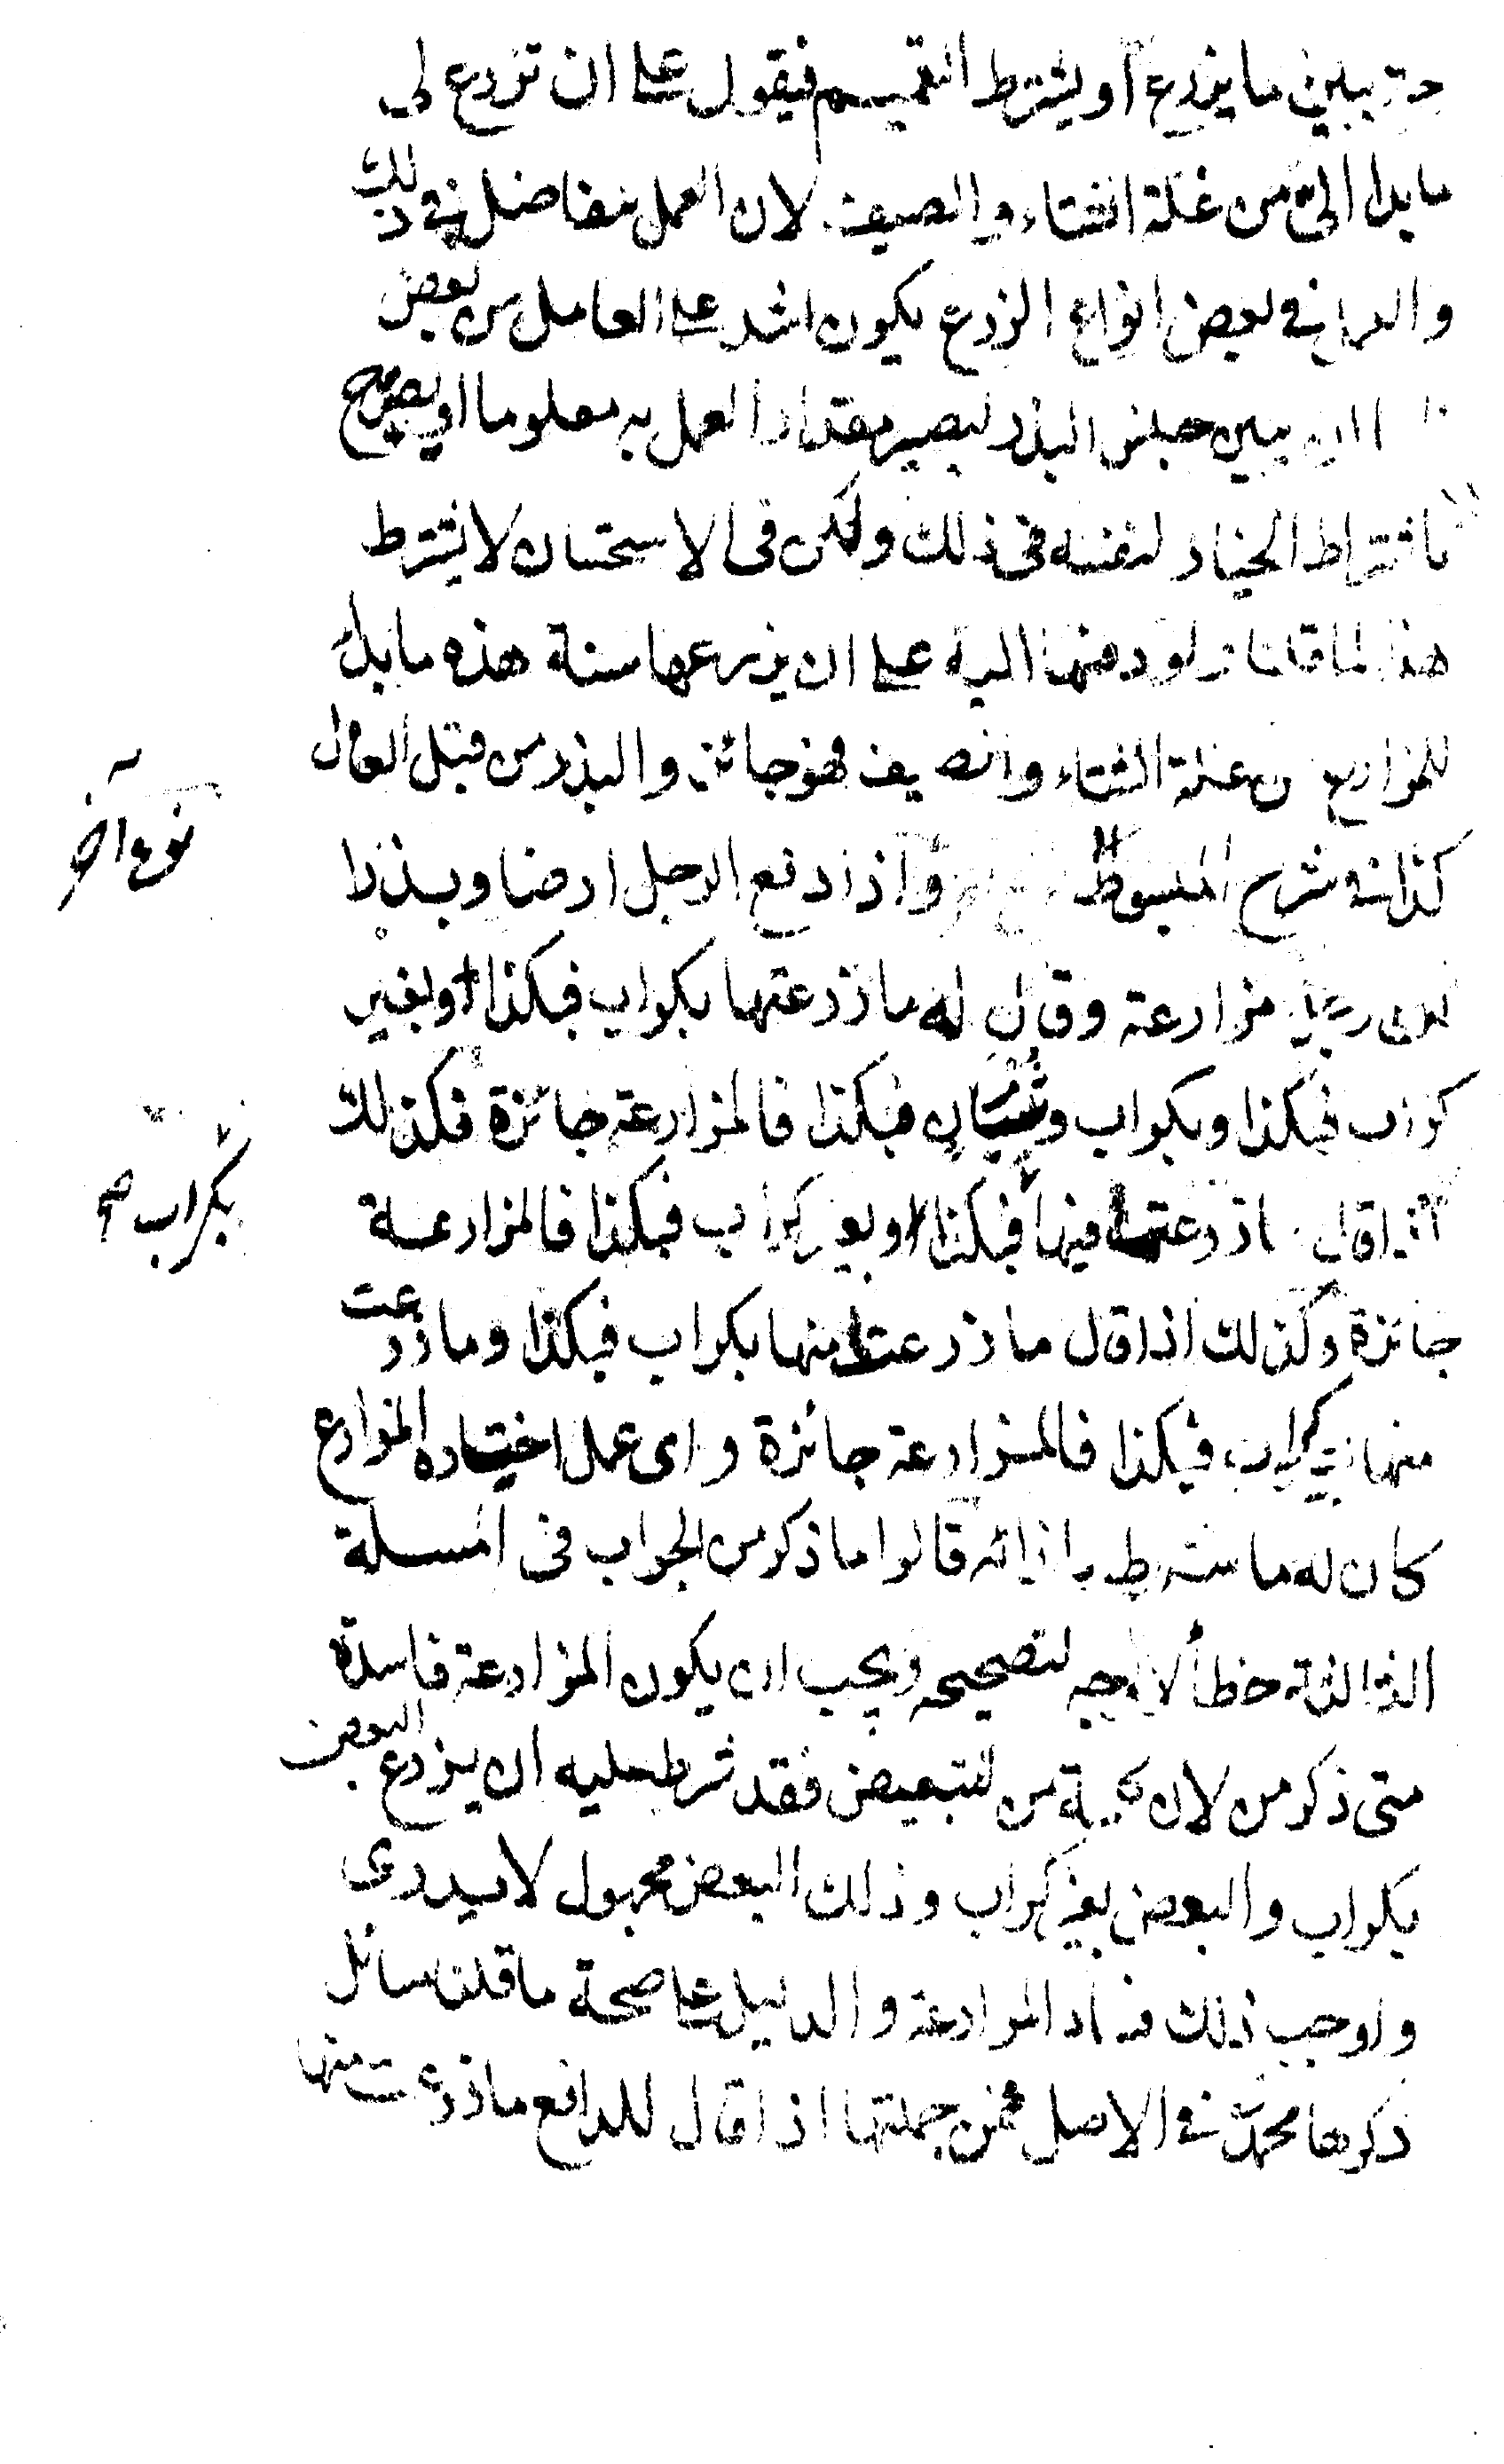 حتى يبين ما يزرع او يشترط التعميم فيقول على ان تزرع لى
ما بدا الى من غلة الشتاء والصيف لان العمل يتفاضل فى ذلك
والعمل فى بعض انواع الزرع يكون اشد على العامل من بعض
الان يبين جنس البذر ليصير مقدار العمل به معلوما او يصرح
باشتراط الخيار لنفسه فى ذلك ولكن فى الاستحسان لا يشترط
هذا لما قلنا ولو دفعها اليه على ان يزرعها سنة هذه ما بدا
للمزارع من غلة الشتاء والصيف فهو جائز والبذر من قبل العامل
كذا فى شرح المبسوط واذا دفع الرجل ارضا وبذرا
الى رجل مزارعة وقال له ما زرعتها بكراب فبكذا او بغير
كراب فبكذا وبكراب وثنيان فبكذا فالمزارعة جائزة فكذلك
اذا قال ما زرعت فيها فبكذا او بغير كراب فبكذا فالمزارعة
جائزة وكذلك اذا قال ما زرعت منها بكراب فبكذا وما زرعت
منها بغير كراب فبكذا فالمزارعة جائزة واى عمل اختاره المزارع
كان له ما شرط بازائه قالوا ما ذكر من الجواب فى المسلة
الثالثة خطأ لا وجه لتصحيحه ويجب ان يكون المزارعة فاسدة
متى ذكر من لان كلمة من للتبعيض فقد شرط عليه ان يزرع البعض
بكراب والبعض بغير كراب وذلك البعض مجهول لا يدرى
واوجب ذلك فساد المزارعة والدليل على صحة ما قلنا مسائل
ذكرها محمد فى الاصل فمن جملتها اذا قال للدافع ما زرعت منها
نوع آخر
بكراب صح